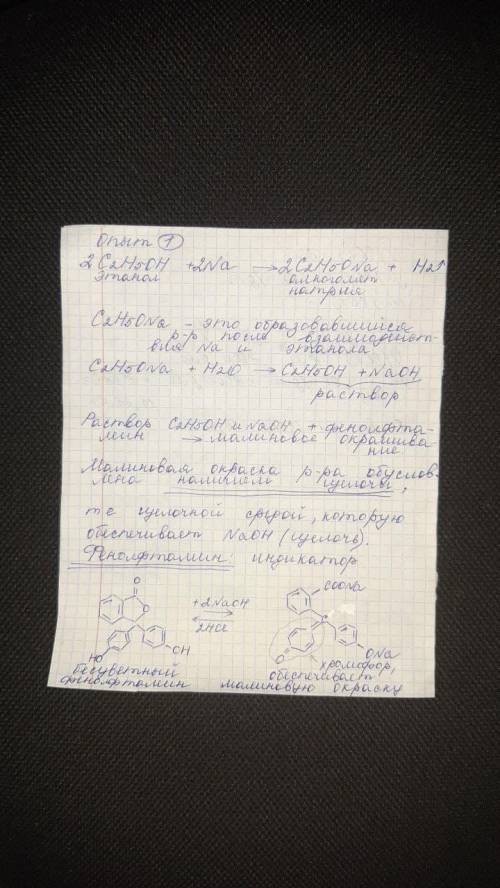 Опыт 1
2C2H5OH + 2Na → 2C2H5ONa + H2↑
этанол алкоголят
натрия
C2H5ONa - это образовавшийся
р-р после взаимодейст-
вия Na и этанола
C2H5ONa + H2O → C2H5OH + NaOH
раствор
Раствор C2H5OH и NaOH + фенолфта-
леин → малиновое окрашива-
ние
Малиновая окраска р-ра обуслов-
лена наличием щелочи,
т е щелочной средой, которую
обеспечивает NaOH (щелочь).
Фенолфталеин: индикатор
O
O
HO
OH
+ 2NaOH
2HCl
COONa
C
O
ONa
хромофор,
бесцветный обеспечивает
фенолфталеин малиновую окраску